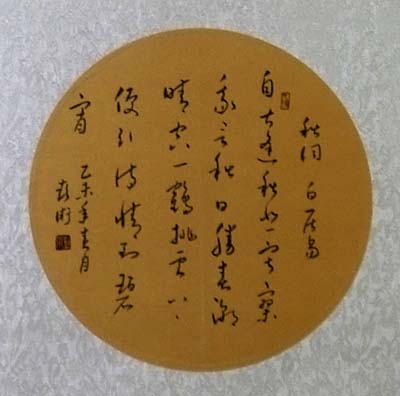 秋词 白居易
自古逢秋悲寂寥
我言秋日胜春潮
晴空一鹤排云上
便引诗情到碧
霄
乙未年春月